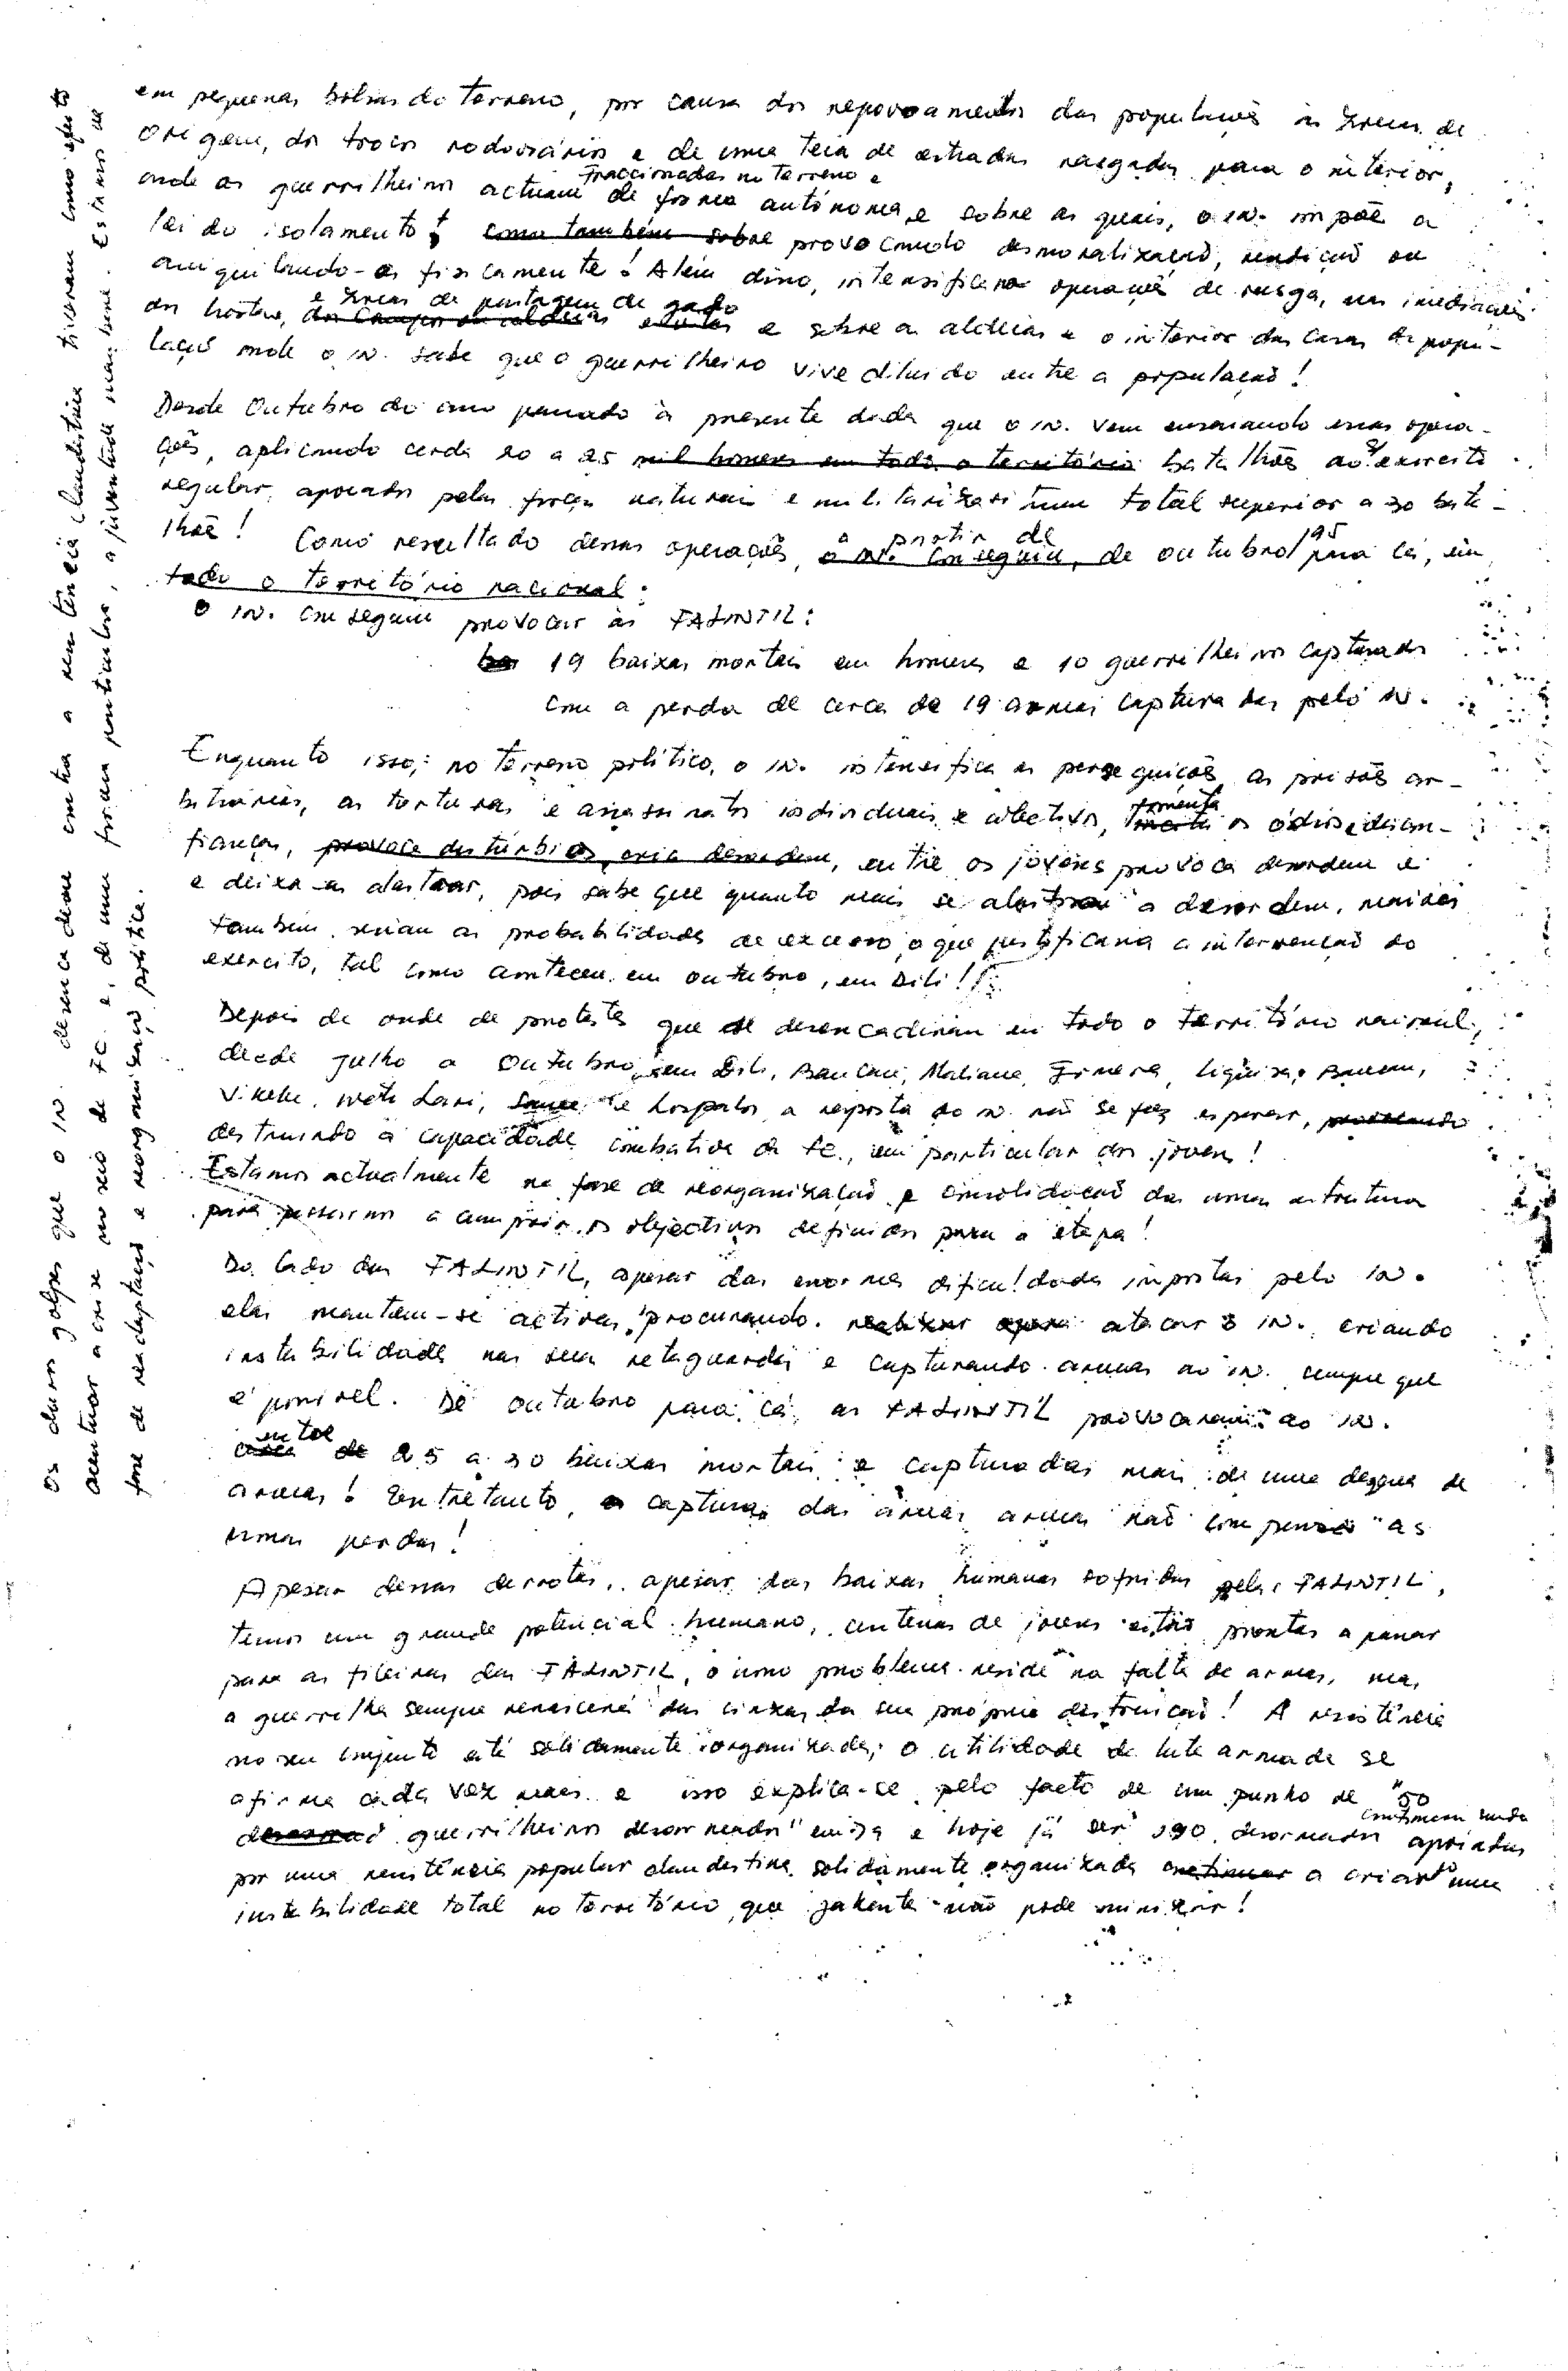 em pequenas bolsas do terreno, por causa dos repovoamentos das populações às áreas de
origem, dos troços rodoviários e de uma teia de estradas rasgadas para o interior,
onde as guerrilheiros actuam fraccionadas no terreno e de forma autónoma, e sobre as quais, o in. impõe a
lei do isolamento, como também sobre provocando desmoralização, rendição ou
aniquilando-as fisicamente! Além disso, intensificar operações de rusga, nas imediações
das hortas, e áreas de pastagem de gado das e sobre as aldeias e o interior das casas da popu-
lação onde o in. sabe que o guerrilheiro vive diluido entre a população!
Desde Outubro do ano passado à presente data que o in. vem ensaiando essas opera-
ções, aplicando cerca 20 a 25 mil homens em todo o território batalhões do exercito
regular, apoiados pelas forças naturais e militarizasi num total superior a 30 bata-
lhões! Como resultado dessas operações, o in. conseguiu, a partir de de outubro/95 para cá, em
todo o território nacional:
O in. conseguiu provocar às FALINTIL:
19 baixas mortais em homens e 10 guerrilheiros capturados
com a perda de cerca de 19 armas capturadas pelo in.
Enquanto isso, no terreno político, o in. intensifica as perseguições, as prisões ar-
bitrárias, as torturas e assassinatos individuais e colectivos, fomenta os ódios e descon-
fianças, provoca distúrbios, cria desordem, entre os jovens provoca desordem e
e deixa-as alastrar, pois sabe que quanto mais se alastrar a desordem, maiores
também seriam as probabilidades de excesso, o que justificaria a intervenção do
exercito, tal como aconteceu em outubro, em Dili!
Depois de onde de protestos que se desencadeiam em todo o território nacional,
desde Julho a Outubro, em Dili, Baucau, Maliana, Ermera, Liquiça, Baucau,
Vikeke, Watu Lari, e Lospalos, a resposta do in. não se fez esperar,
destruindo a capacidade combativa da FC., em particular dos jovens!
Estamos actualmente na fase de reorganização e consolidação das nossas estruturas
para passarmos a cumprir os objectivos definidos para a etapa!
Do lado das FALINTIL, apesar das enormes dificuldades impostas pelo in.
elas mantem-se activas, procurando realizar atacar o in., criando
instabilidade nas suas retaguardas e capturando armas ao in. sempre que
é possível. De outubro para cá, as FALINTIL provocaram ao in.
entre cerca de 25 a 30 baixas mortais e capturadas mais de uma dezena de
armas! Entretanto, a captura das armas armas não compensa as
nossas perdas!
Apesar dessas derrotas, apesar das baixas humanas sofridas pelas FALINTIL,
temos um grande potencial humano, centenas de jovens estão prontos a passar
para as fileiras das FALINTIL, o nosso problema reside na falta de armas, mas
a guerrilha sempre renascerá das cinzas da sua própria destruição! A resistência
no seu conjunto está solidamente organizada, a utilidade da luta armada se
afirma cada vez mais e isso explica-se pelo facto de um punho de "50
guerrilheiros desarmados" em 89 e hoje já ser 190 desarmados continuam ainda apoiados
por uma resistência popular clandestina solidamente organizada continuar a criar uma
instabilidade total no território, que Jakarta não pode minizar!
Os duros golpes que o in. desencadeou contra a resistência clandestina tiveram como efeito
acentuar a crise no seio de FC e, de uma forma particular, a juventude maubere. Estamos na
fase de readaptação e reorganização política.